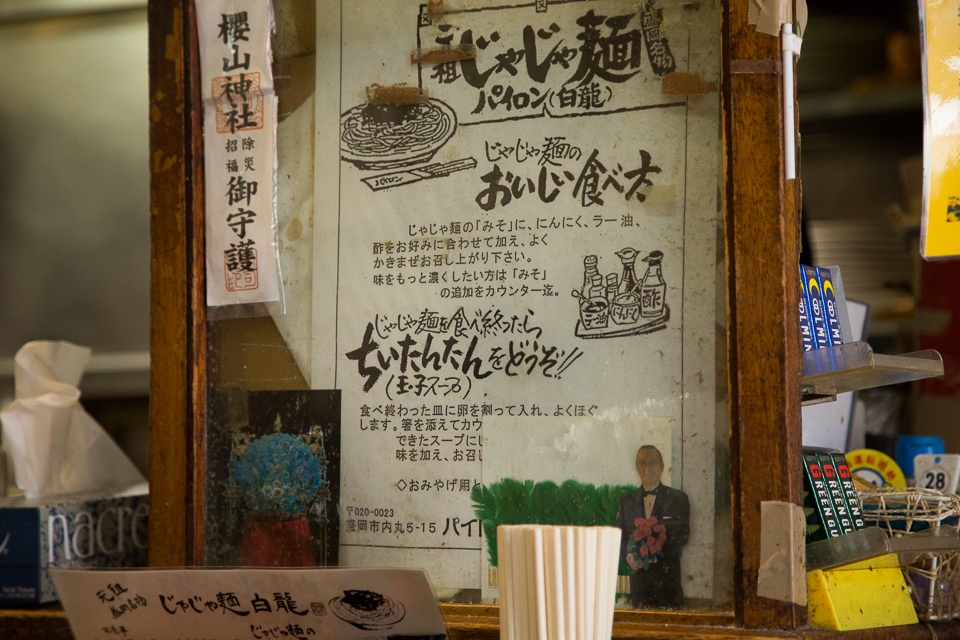 櫻山神社
除災
招福
御守護
元祖
じゃじゃ麺
盛岡名物
パイロン(白龍)
パイロン
じゃじゃ麺の
おいしい食べ方
じゃじゃ麺の「みそ」に、にんにく、ラー油、
酢をお好みに合わせて加え、よく
かきまぜお召し上がり下さい。
味をもっと濃くしたい方は「みそ」
の追加をカウンター迄。
酢
じゃじゃ麺を食べ終ったら
ちいたんたんをどうぞ!!
(玉子スープ)
食べ終わった皿に卵を割って入れ、よくほぐ
します。箸を添えてカウ
できたスープにし
味を加え、お召し
◇おみやげ用と
〒020-0023
盛岡市内丸5-15 パイ
nacre
元祖
じゃじゃ麺 白龍
じゃじゃ麺の
COOL MINT
GREEN GUM
GREEN GUM
28